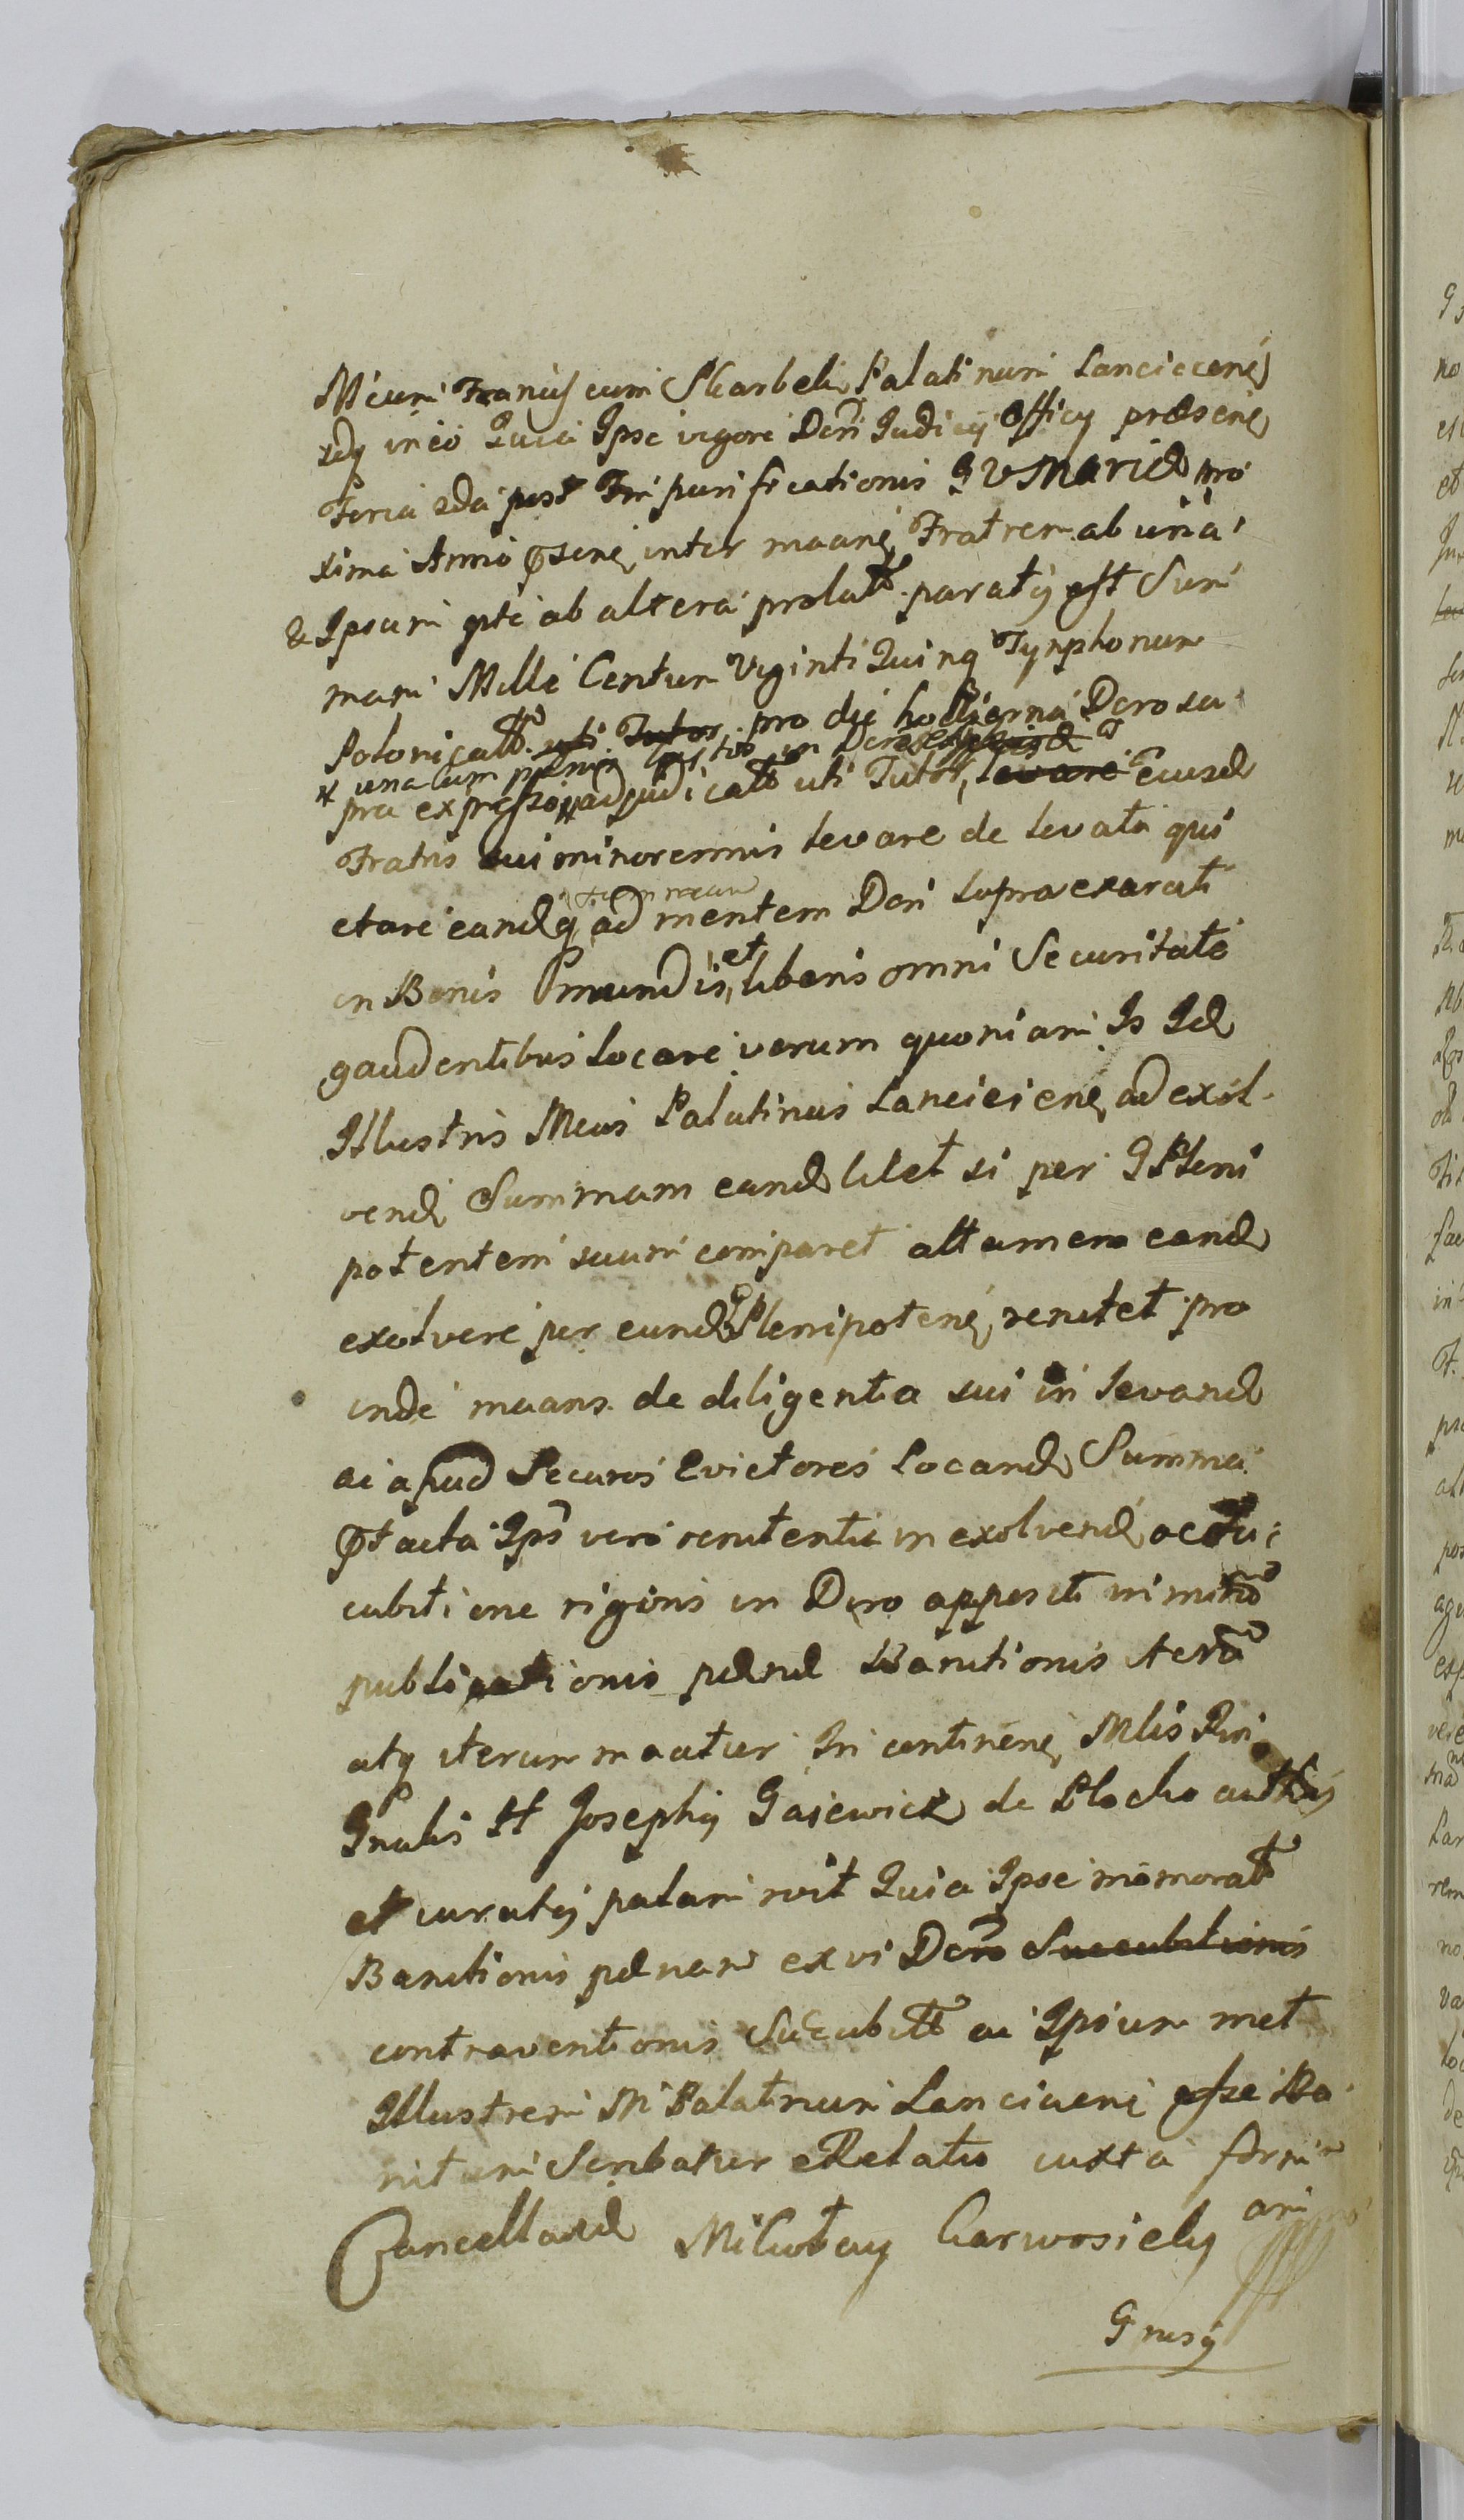 Mcum Franciscum Skarbek Palatinum Lanciccens
sdq in eo Quia Ipse vigore Dcri Judicij Officij praesens
Feria 2da post Ftm purificationis B V Mariae pro
xima Anno psens inter maans Fratrem ab una
& Ipsum pte ab altera prolatt paratq est Sum
mam Mille Centum Viginti Quinq Tynphonum
Polonicatt uti Tutor pro die hodierna Dcro su
x una cum in Dcro
pra expresso adjudicatt uti Tutor, levare Ejusd
Fratris sui minorennis levare de levata qui
etare eandq ad mentem Dcri supra exarati
in Bonis Pmundis et liberis omni Securitate
gaudentibus locare verum quoniam Is Id
Illustris Mcus Palatinus Lanciciens ad exol
vend Summam eand licet si per G Pleni
potentem suum comparet attamen eand
exolvere per eund G Plenipotens renitet pro
inde maans de diligentia sui in levand
ac apud Securos Evictores locand Summa
Ptacta Ips vero renitentia in exolvend ac
cubitione rigoris in Dcro apposit inimitto
publicationis paenae Banitionis
atq iterum maatur In continens Mlis Rni
Gnalis H Josephq Gajewicz de Plocko authq
et juratq palam rvit Quia Ipse memoratt
Banitionis paenam ex vi Dcro Succubitionis
contraventionis Succubitt ac Ipsum met
Illustrem M Palatinum Lancicens esse Ba
nitum Scribatur Relatio juxta form
Cancellariae Mikołay Karwosiecky
Gnusq